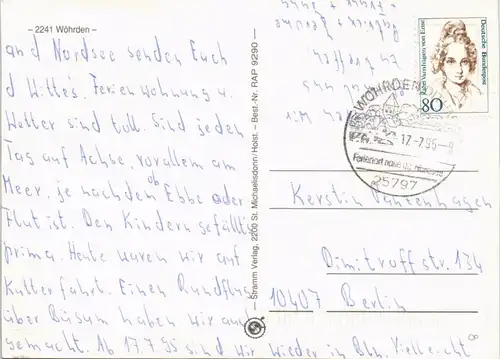 – 2241 Wöhrden –
and Nordsee senden Euch
Wetter sind toll. Sind jeden
Tag auf Achse, vorallem am
Meer, je nachdem ob Ebbe oder
Flut ist. Den Kindern gefällts
prima. Heute waren wir auf
Kutterfahrt. Einen Rundflug
über Büsum haben wir auch
gemacht. Ab 17.7.95 sind wir wieder in Bln. Vielleicht
— Stramm Verlag, 2200 St. Michaelisdonn/Holst. – Best.-Nr. RAP 9290 —
Deutsche Bundespost
Rahel Varnhagen von Ense
80
WÖHRDEN
17-7.95-8
Ferienort nahe der Nordsee
25797
Kerstin
Dimitroffstr. 134
10407 Berlin